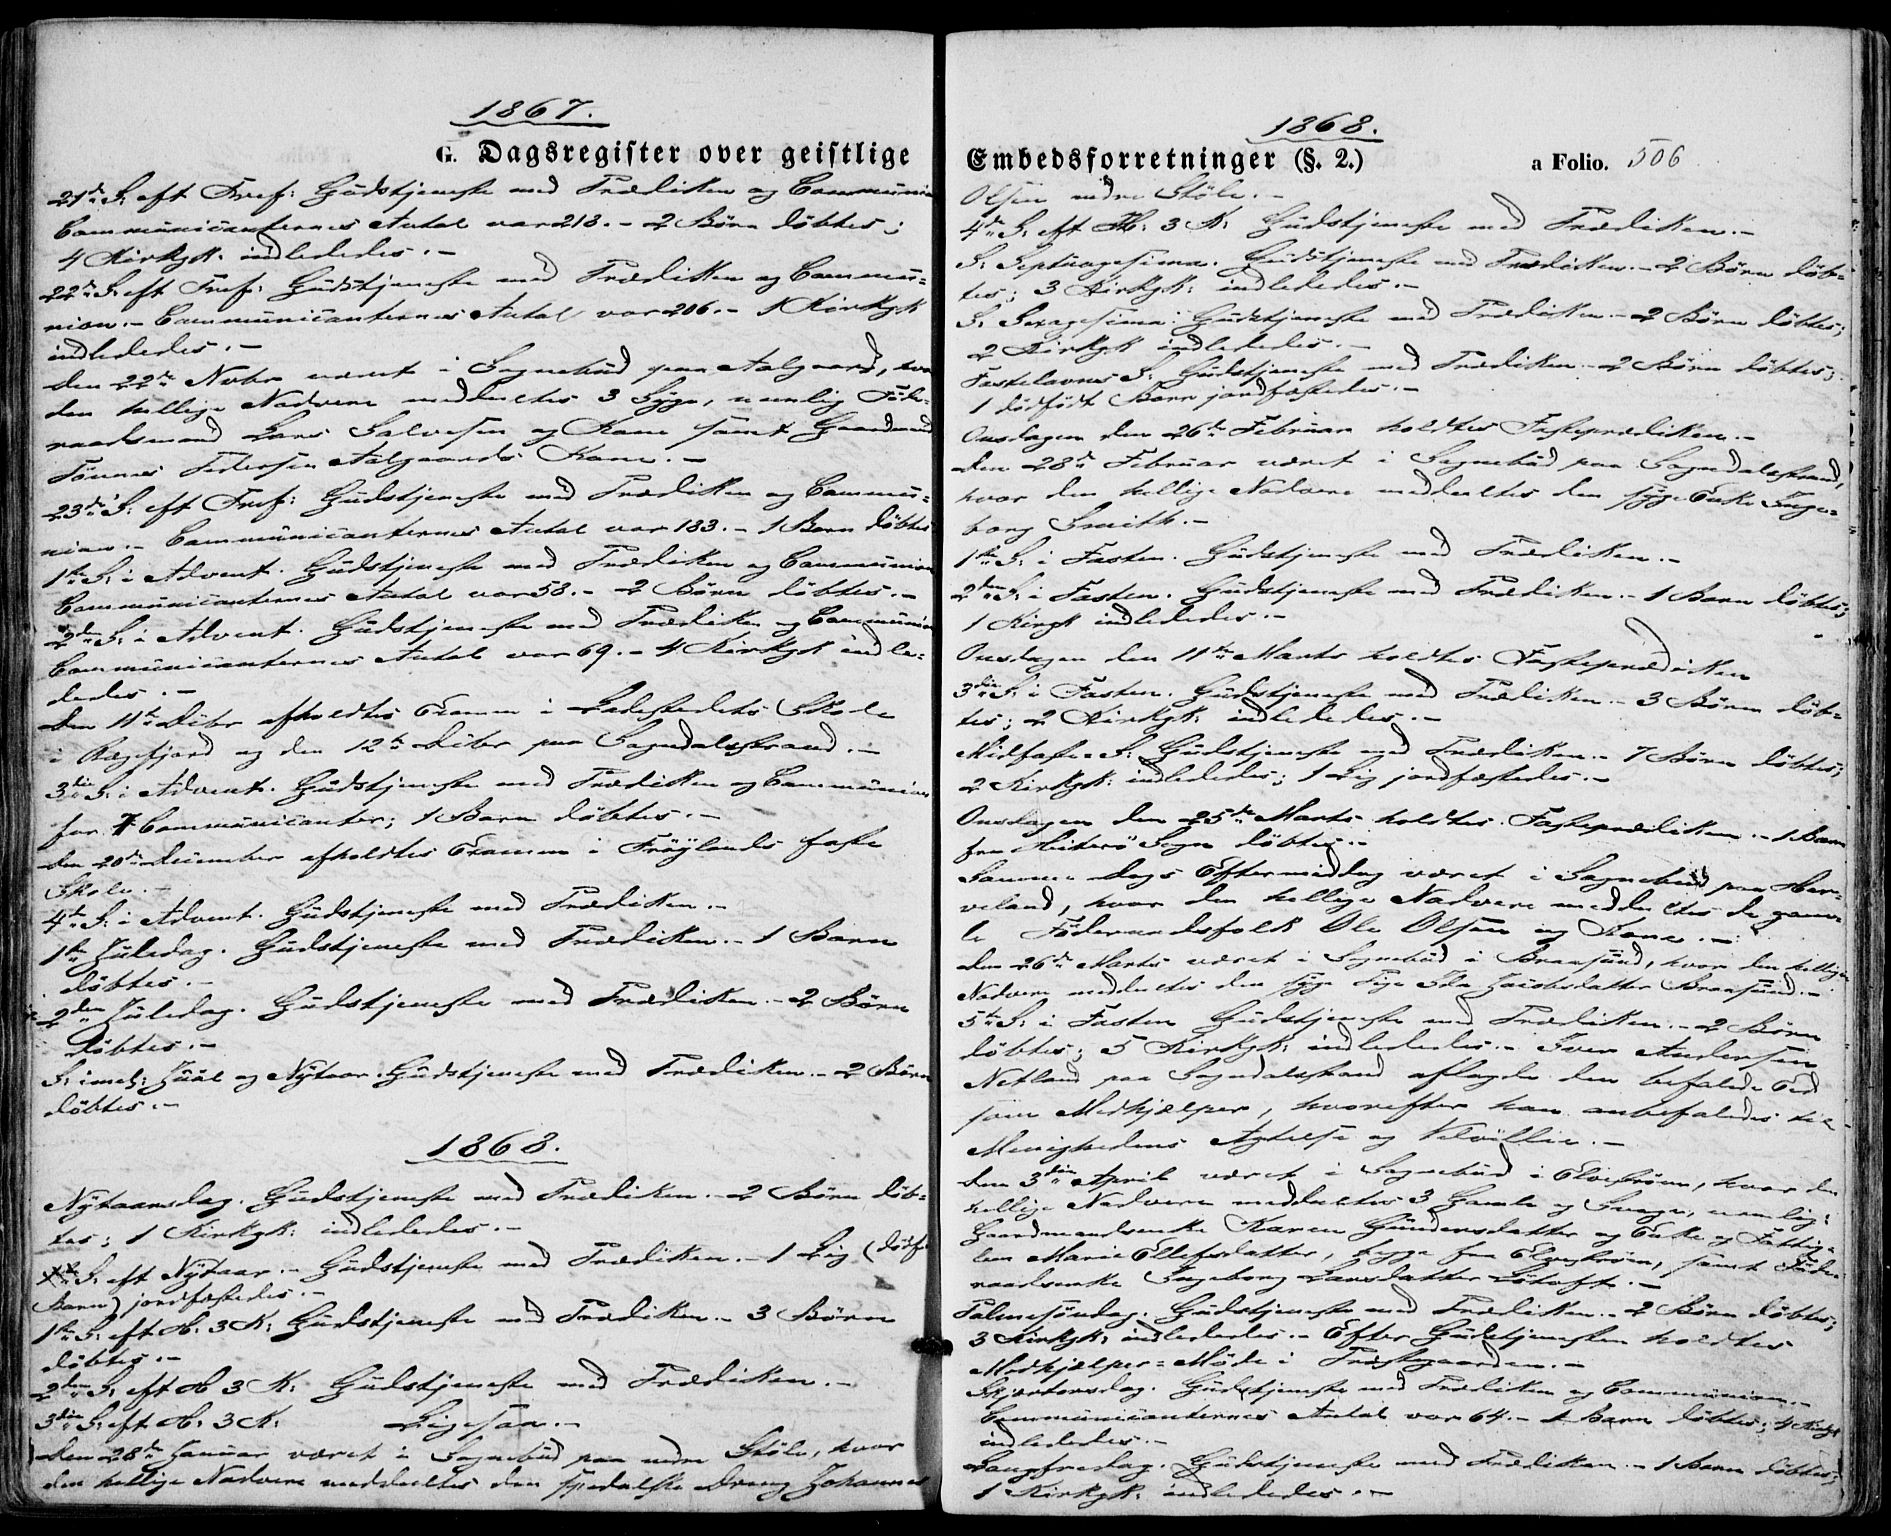 1867.
G. Dagsregister over geistlige
21de S. eft Tref: Gudstjeneste med Prædiken og Communion
Communicanternes Antal var 218. - 2 Børn døbtes;
4 Kirkgk. indlededes. -
22de S. eft Tref: Gudstjeneste med Prædiken og Commu-
nion. - Communicanternes Antal var 206. - 1 Kirkgk
indlededes. -
den 22de Novbr været i Sognebud paa Aalgaard, hvor
den hellige Nadvere meddeltes 3 Syge, nemlig Føde-
raadsmand Lars Salvesen og Kone samt Gaardmand
Tønnes Pedersen Aalgaards Kone. -
23de S. eft Tref: Gudstjeneste med Prædiken og Commu-
nion. - Communicanternes Antal var 183. - 1 Barn døbtes
1ste S. i Advent. Gudstjeneste med Prædiken og Communion
Communicanternes Antal var 58. - 2 Børn døbtes. -
2den S. i Advent. Gudstjeneste med Prædiken og Communion
Communicanternes Antal var 69. - 4 Kirkgk indle-
dedes. -
den 11te Dcbr afholdtes Examen i Ladestedets Skole
i Rægefjord og den 12te Dcbr paa Sogndalsstrand. -
3die S. i Advent. Gudstjeneste med Prædiken og Communion
for 7 Communicanter; 1 Barn døbtes. -
den 20de December afholdtes Examen i Frøylands faste
Skole. -
4de S. i Advent. Gudstjeneste med Prædiken. -
1ste Juledag. Gudstjeneste med Prædiken. - 1 Barn
døbtes. -
2den Juledag. Gudstjeneste med Prædiken. - 2 Børn
døbtes. -
S. imel: Juul og Nytaar. Gudstjeneste med Prædiken. - 2 Børn
døbtes. -
1868.
Nytaarsdag. Gudstjeneste med Prædiken. - 2 Børn døb-
tes; 1 Kirkgk: indlededes. -
S. eft Nytaar. - Gudstjeneste med Prædiken. - 1 Lig (dødf.
Barn) jordfæstedes. -
1ste S. eft H. 3 K: Gudstjeneste med Prædiken. - 3 Børn
døbtes. -
2den S. eft H 3 K. Gudstjeneste med Prædiken. -
3die S. eft H. 3 K: Ligesaa. -
den 28de Januar været i Sognebud paa nedre Støle, hvor
den hellige Nadvere meddeltes den spedalske Dreng Johannes
1868.
Embedsforretninger (§. 2.) a Folio. 506
Olsen nedre Støle. -
4de S. eft H. 3 K. Gudstjeneste med Prædiken. -
S. Septuagesima. Gudstjeneste med Prædiken. - 2 Børn døb-
tes; 3 Kirkgk: indlededes. -
S. Sexagesima: Gudstjeneste med Prædiken. - 2 Børn døbtes;
2 Kirkgk indlededes. -
Fastelavns S. Gudstjeneste med Prædiken. - 2 Børn døbtes;
1 dødfødt Barn jordfæstedes. -
Onsdagen den 26de Februar holdtes Fasteprædiken. -
den 28de Februar været i Sognebud paa Sogndalsstrand,
hvor den hellige Nadvere meddeeltes den syge Enke Inge-
borg Smith. -
1ste S. i Fasten. Gudstjeneste med Prædiken. -
2den S. i Fasten. Gudstjeneste med Prædiken. - 1 Barn døbtes;
1 Kirgk indlededes. -
Onsdagen den 11te Marts holdtes Fasteprædiken
3die S. i Fasten. Gudstjeneste med Prædiken. - 3 Børn døb-
tes; 2 Kirkgk: indlededes. -
Midfaste S. Gudstjeneste med Prædiken. - 7 Børn døbtes;
2 Kirkgk: indlededes; 1 Lig jordfæstedes. -
Onsdagen den 25de Marts holdtes Fasteprædiken. - 1 Barn
fra Hiterø Sogn døbtes. -
Samme Dags Eftermiddag været i Sognebud paa Her-
veland, hvor den hellige Nadvere meddeeltes de gam-
le Føderaadsfolk Ole Olsen og Kone. -
den 26de Marts været i Sognebud i Bransund, hvor den hellige
Nadvere meddeeltes den syge Pige Ida Jacobsdatter Bransund. -
5te S. i Fasten Gudstjeneste med Prædiken. - 2 Børn
døbtes; 5 Kirkgk: indlededes. - Iver Andersen
Netland paa Sogndalsstrand aflagde den befalede Eed
som Medhjælper, hvorefter han anbefaledes til
Menighedens Agtelse og Velvillie. -
den 3die April været i Sognebud i Elvestrøm, hvor den
hellige Nadvere meddeeltes 3 Gamle og Svage, nemlig:
Gaardmandsenke Karen Gundersdatter og Enke og Fattig-
lem Marie Ellefsdatter, begge fra Elvestrøm, samt Føde-
raadsenke Ingeborg Larsdatter Løtoft. -
Palmesøndag. Gudstjeneste med Prædiken. - 2 Børn døbtes;
3 Kirkgk: indlededes. - Efter Gudstjenesten holdtes
Medhjælper-Møde i Præstegaarden. -
Skjærtorsdag. Gudstjeneste med Prædiken og Communion. -
Communicanternes Antal var 64. - 1 Barn døbtes; 4 Kirkgk
indlededes. -
Langfredag. Gudstjeneste med Prædiken. - 1 Barn døbtes;
1 Kirkgk: indlededes. -